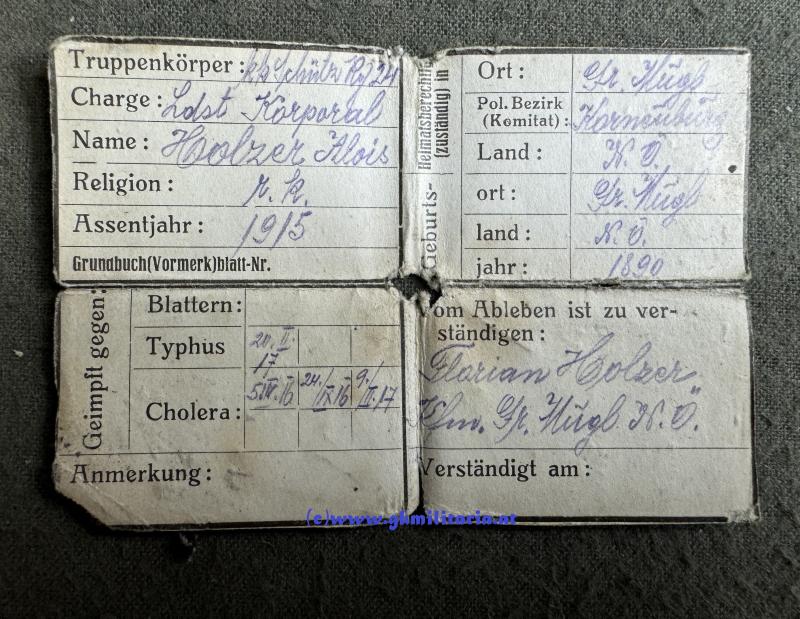 Truppenkörper: k.k. Schütz. Rgt 24
Charge: Ldst Korporal
Name: Holzer Alois
Religion: r. k.
Assentjahr: 1915
Grundbuch(Vormerk)blatt-Nr.
Heimatsberechtigt (zuständig) in
Ort: Gr. Mugl
Pol. Bezirk (Komitat): Korneuburg
Land: N. Ö.
Geburts-
ort: Gr. Mugl
land: N. Ö.
jahr: 1890
Geimpft gegen:
Blattern:
Typhus 20. II. 17
Cholera: 5. 16 24./IX 16 9./II. 17
Anmerkung:
Vom Ableben ist zu ver-
ständigen:
Florian Holzer
Gr. Mugl N. Ö.
Verständigt am:
(c)www.ghmilitaria.at